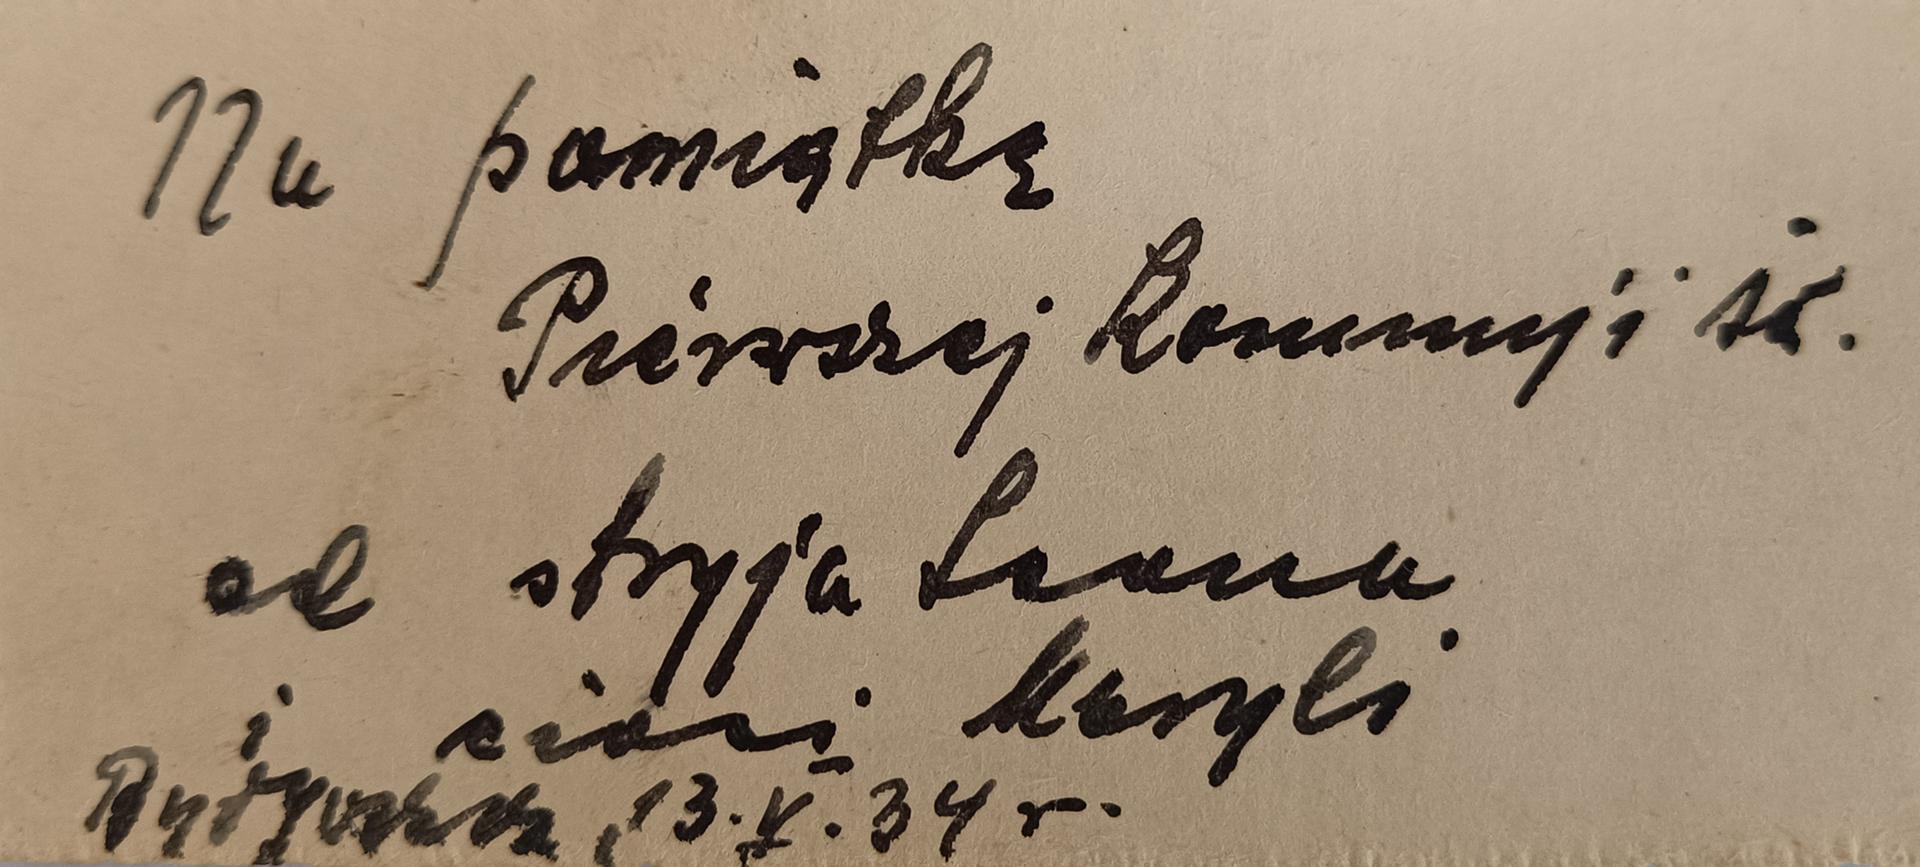 Na pamiątkę
Pierwszej Komunji św.
od stryja Leona
i cioci Maryli
Bydgoszcz, 13.V.34 r.